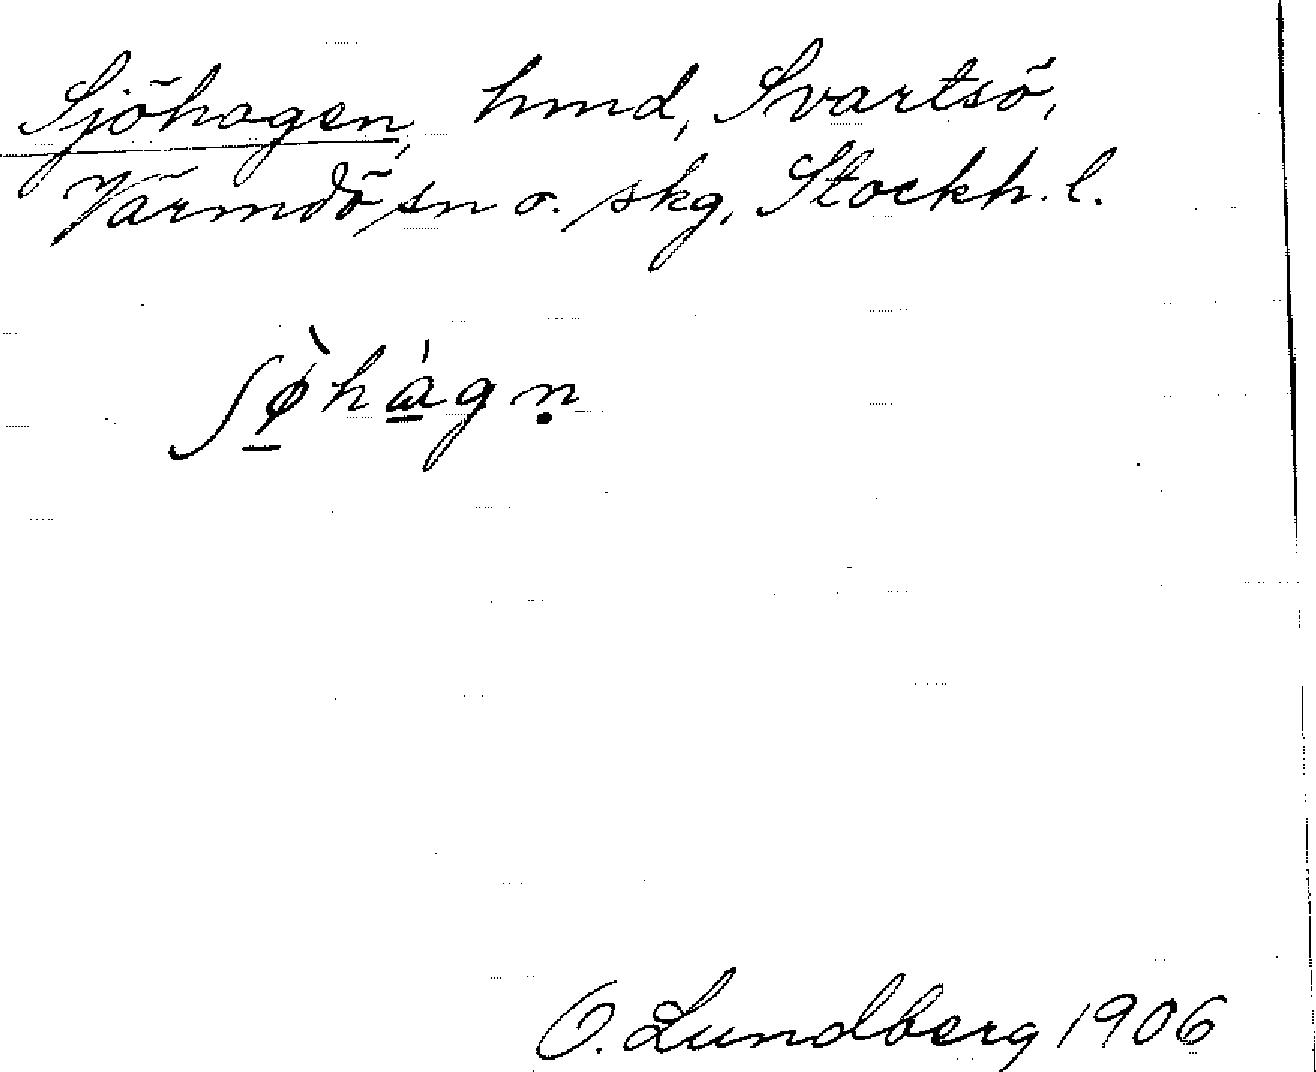 Sjöhagen, hmd, Svartsö,
Värmdö sn o. skg, Stockh. l.
ʃø̠̀ha̠̍gṇ
O. Lundberg 1906